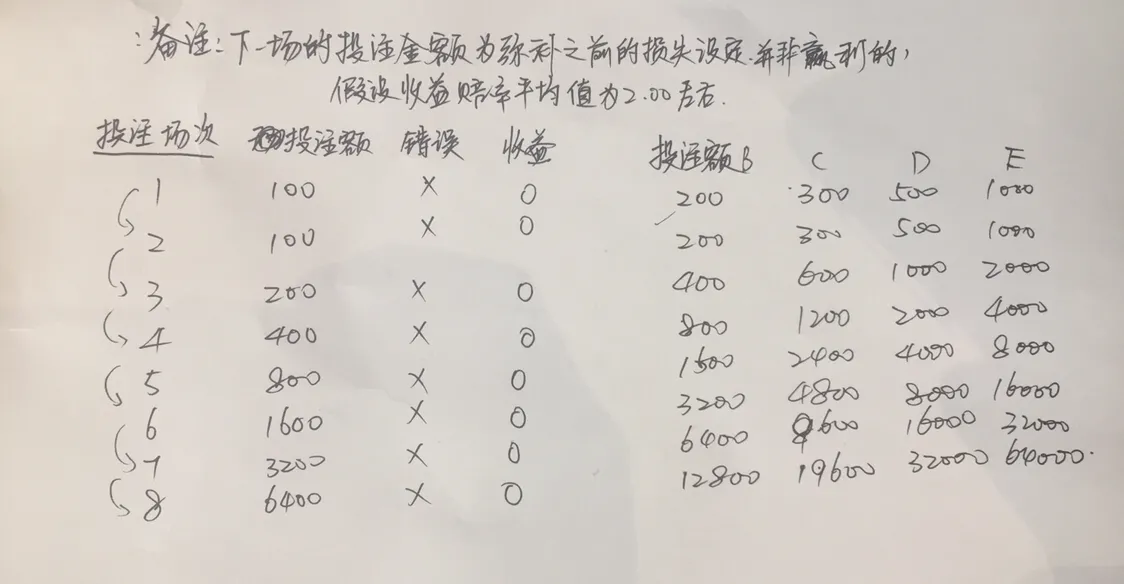 :备注:下一场的投注金额为弥补之前的损失设定.并非赢利的,
假设收益赔率平均值为2.00左右.
投注场次 投注额 错误 收益 投注额B C D E
1 100 × 0 200 300 500 1000
2 100 × 0 200 300 500 1000
3 200 × 0 400 600 1000 2000
4 400 × 0 800 1200 2000 4000
5 800 × 0 1600 2400 4000 8000
6 1600 × 0 3200 4800 8000 16000
7 3200 × 0 6400 9600 16000 32000
8 6400 × 0 12800 19600 32000 64000.